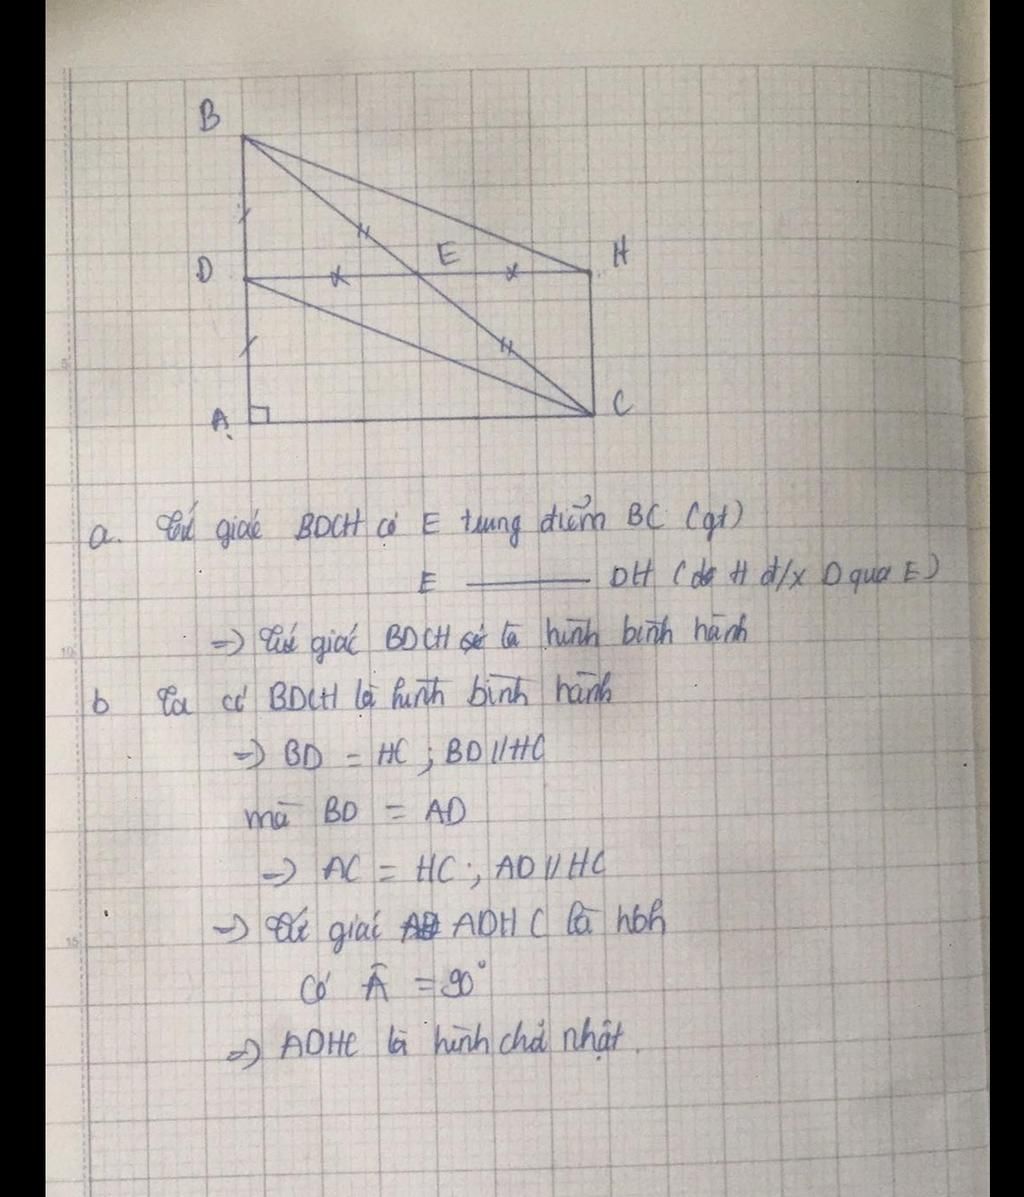 B
D
E
H
A
C
a. Tứ giác BDCH có E trung điểm BC (gt)
E ——— DH (do H đ/x D qua E)
=) Tứ giác BDCH là hình bình hành
b Ta có BDCH là hình bình hành
=) BD = HC ; BD // HC
mà BD = AD
=) AC = HC ; AD // HC
=) Tứ giác ADHC là hbh
Có Â = 90°
=) ADHC là hình chữ nhật.
5
10
15